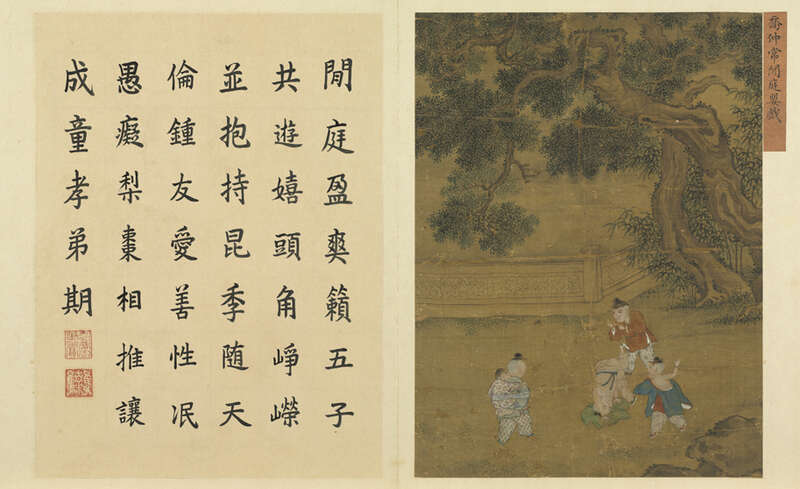 喬仲常閒庭嬰戲
閒庭盈爽籟五子
共遊嬉頭角崢嶸
並抱持昆季随天
倫鍾友愛善性冺
愚癡梨棗相推讓
成童孝弟期